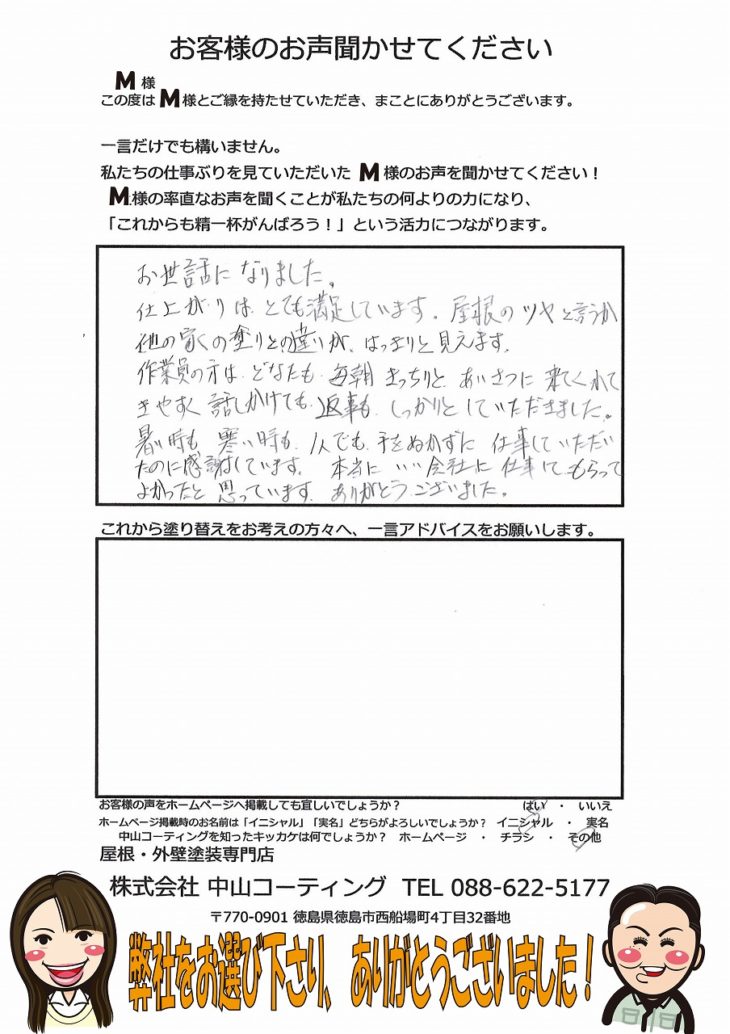 お客様のお声聞かせてください
M 様
この度は M 様とご縁を持たせていただき、まことにありがとうございます。
一言だけでも構いません。
私たちの仕事ぶりを見ていただいた M 様のお声を聞かせてください！
M 様の率直なお声を聞くことが私たちの何よりの力になり、
「これからも精一杯がんばろう！」という活力につながります。
お世話になりました。
仕上がりは とても満足しています。屋根のツヤと言うか
他の家の塗りとの違いが、はっきりと見えます。
作業員の方は どなたも 毎朝 きっちりと あいさつに 来てくれて
きやすく 話しかけても 返事も しっかりと していただきました。
暑い時も 寒い時も 1人でも 手をぬかずに 仕事していただい
たのに感謝しています。 本当に いい会社に 仕事して もらって
よかったと 思っています。ありがとうございました。
これから塗り替えをお考えの方々へ、一言アドバイスをお願いします。
お客様の声をホームページへ掲載しても宜しいでしょうか？ はい ・ いいえ
ホームページ掲載時のお名前は「イニシャル」「実名」どちらがよろしいでしょうか？ イニシャル ・ 実名
中山コーティングを知ったキッカケは何でしょうか？ ホームページ ・ チラシ ・ その他
屋根・外壁塗装専門店
株式会社 中山コーティング TEL 088-622-5177
〒770-0901 徳島県徳島市西船場町4丁目32番地
弊社をお選び下さり、ありがとうございました！